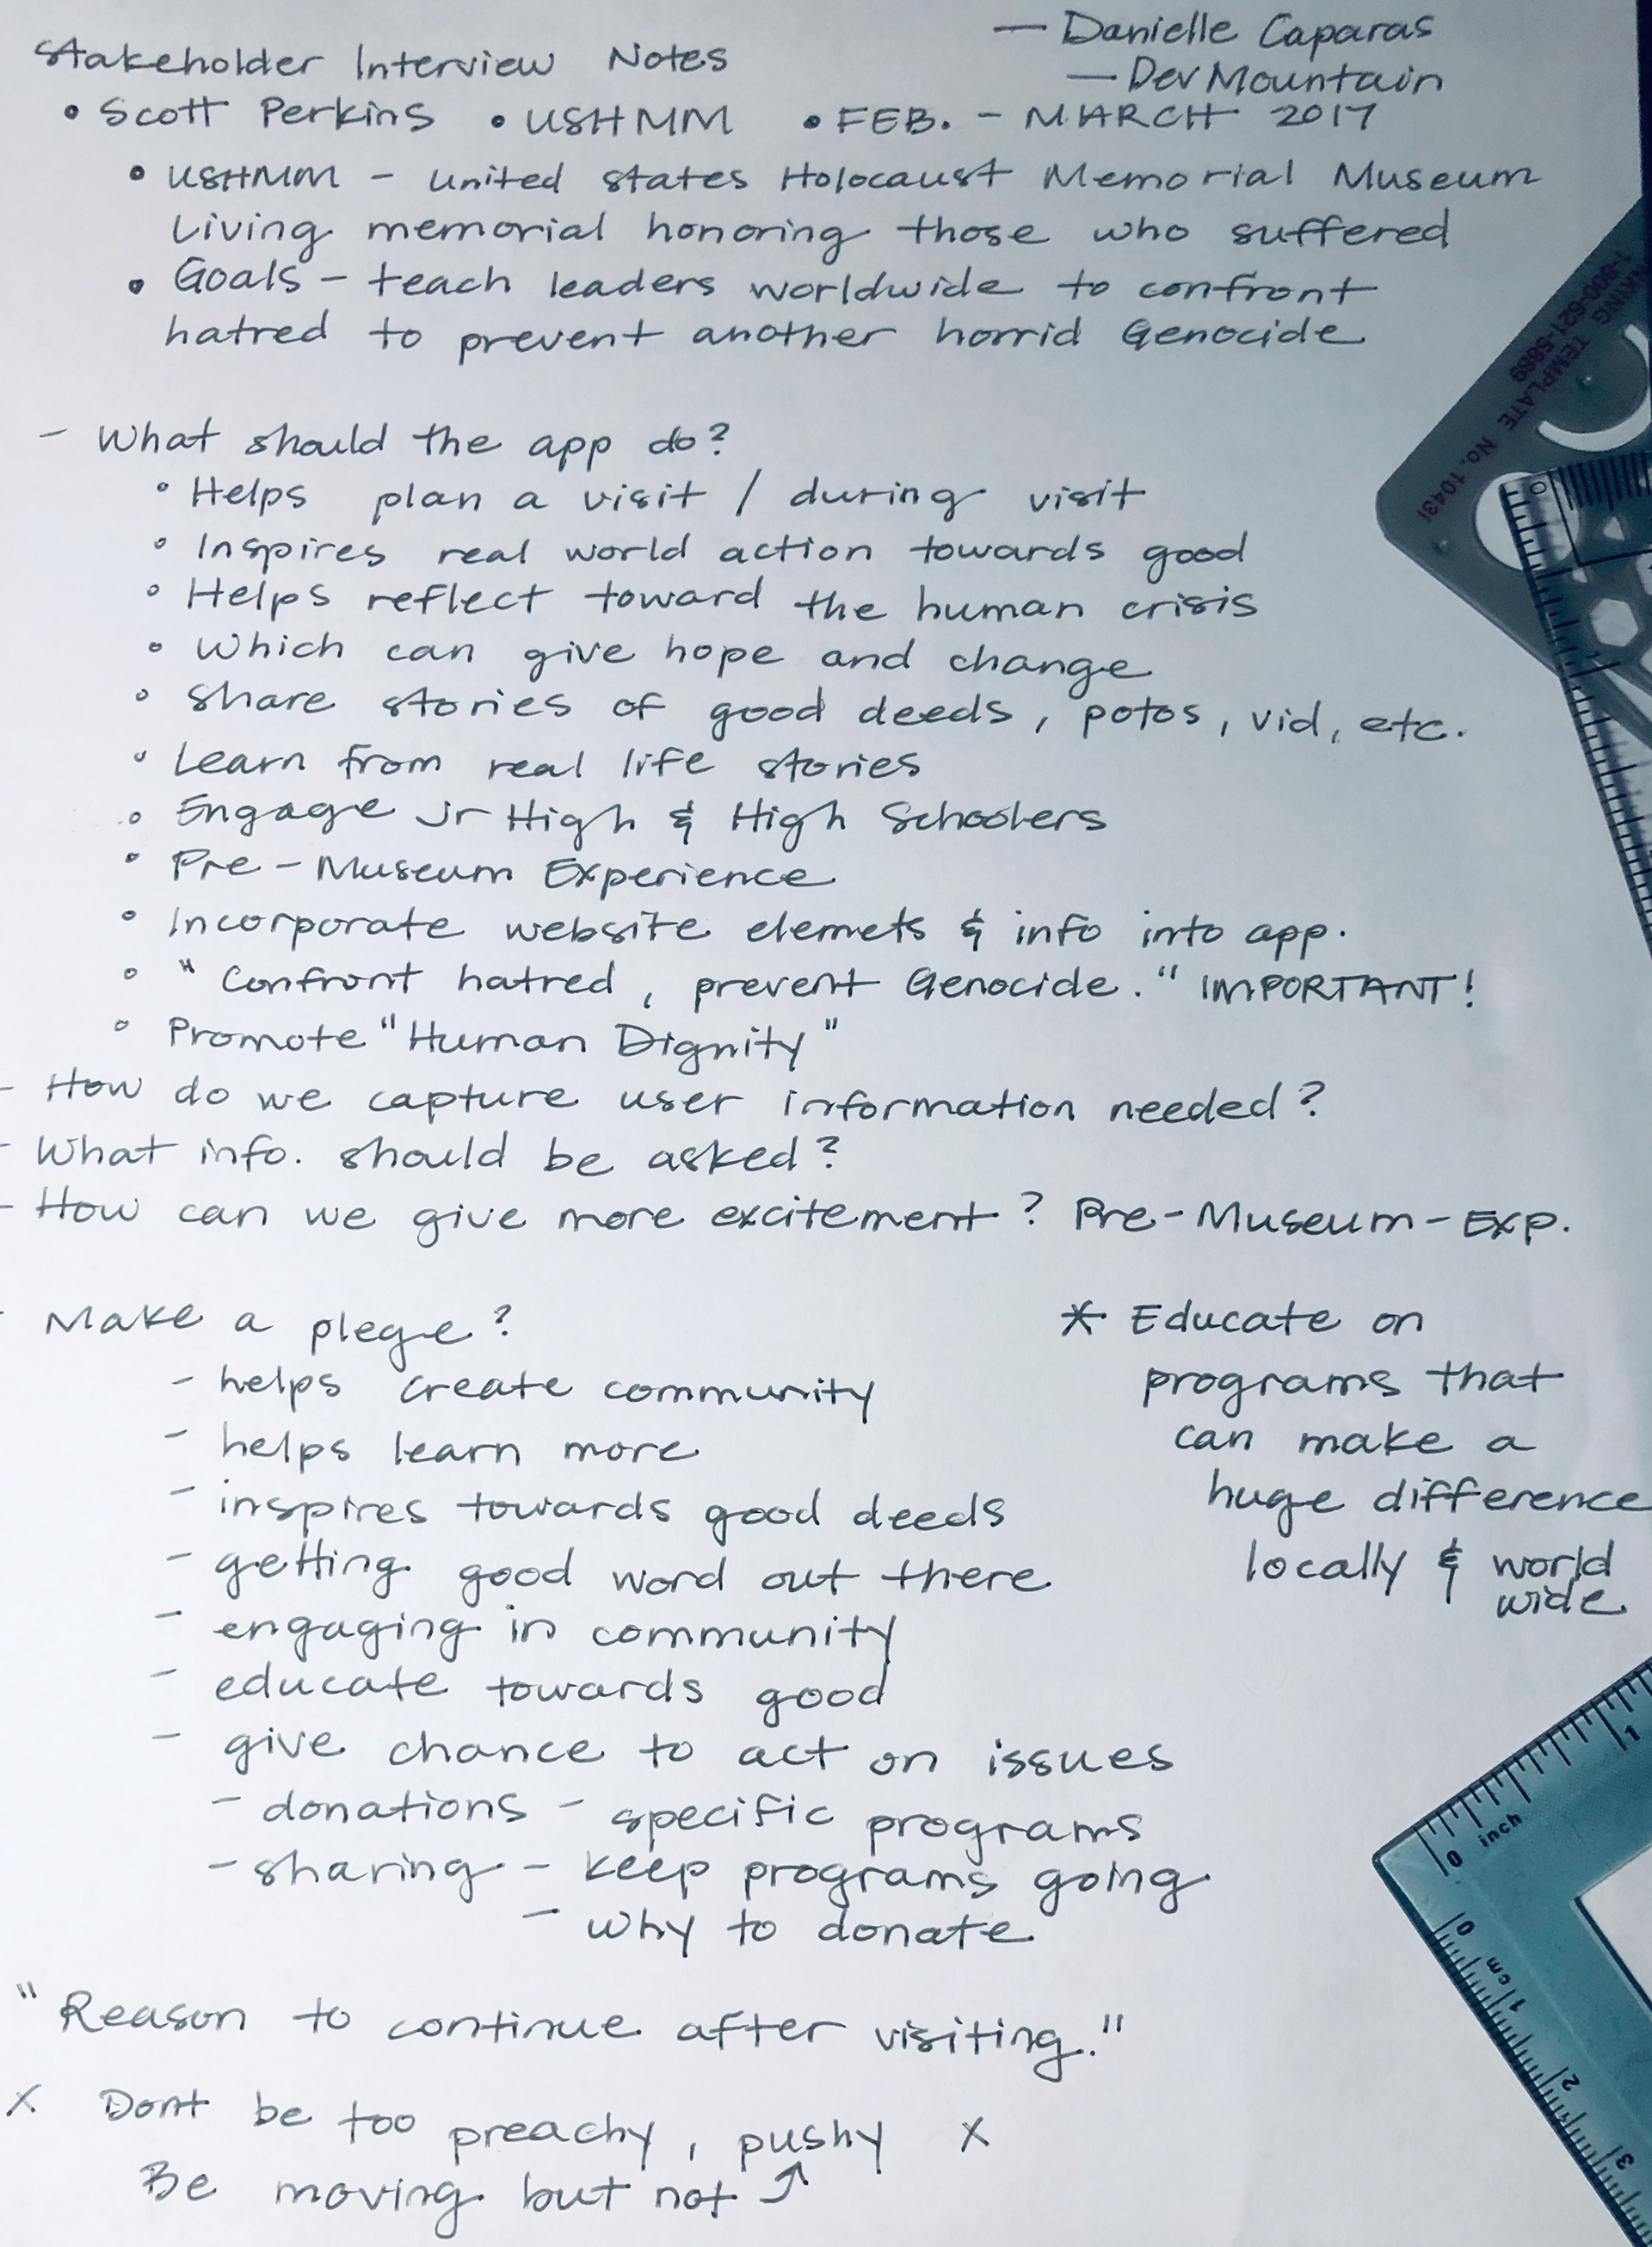 — Danielle Caparas
Stakeholder Interview Notes
— DevMountain
• Scott Perkins • USHMM • FEB. - MARCH 2017
• USHMM - United States Holocaust Memorial Museum
Living memorial honoring those who suffered
• Goals - teach leaders worldwide to confront
hatred to prevent another horrid Genocide
- What should the app do?
• Helps plan a visit / during visit
• Inspires real world action towards good
• Helps reflect toward the human crisis
• Which can give hope and change
• Share stories of good deeds, potos, vid, etc.
• Learn from real life stories
• Engage Jr High & High Schoolers
• Pre-Museum Experience
• Incorporate website elemets & info into app.
• "Confront hatred, prevent Genocide." IMPORTANT!
• Promote "Human Dignity"
- How do we capture user information needed?
- What info. should be asked?
- How can we give more excitement? Pre-Museum-Exp.
- Make a plege?
- helps create community
- helps learn more
- inspires towards good deeds
- getting good word out there
- engaging in community
- educate towards good
- give chance to act on issues
- donations - specific programs
- sharing - keep programs going
- why to donate
* Educate on
programs that
can make a
huge difference
locally & world
wide
"Reason to continue after visiting."
X Dont be too preachy, pushy X
Be moving but not ↗
1-800-621-5889
TEMPLATE No. 1043i
0
inch
0 1
0 1 2 3
cm